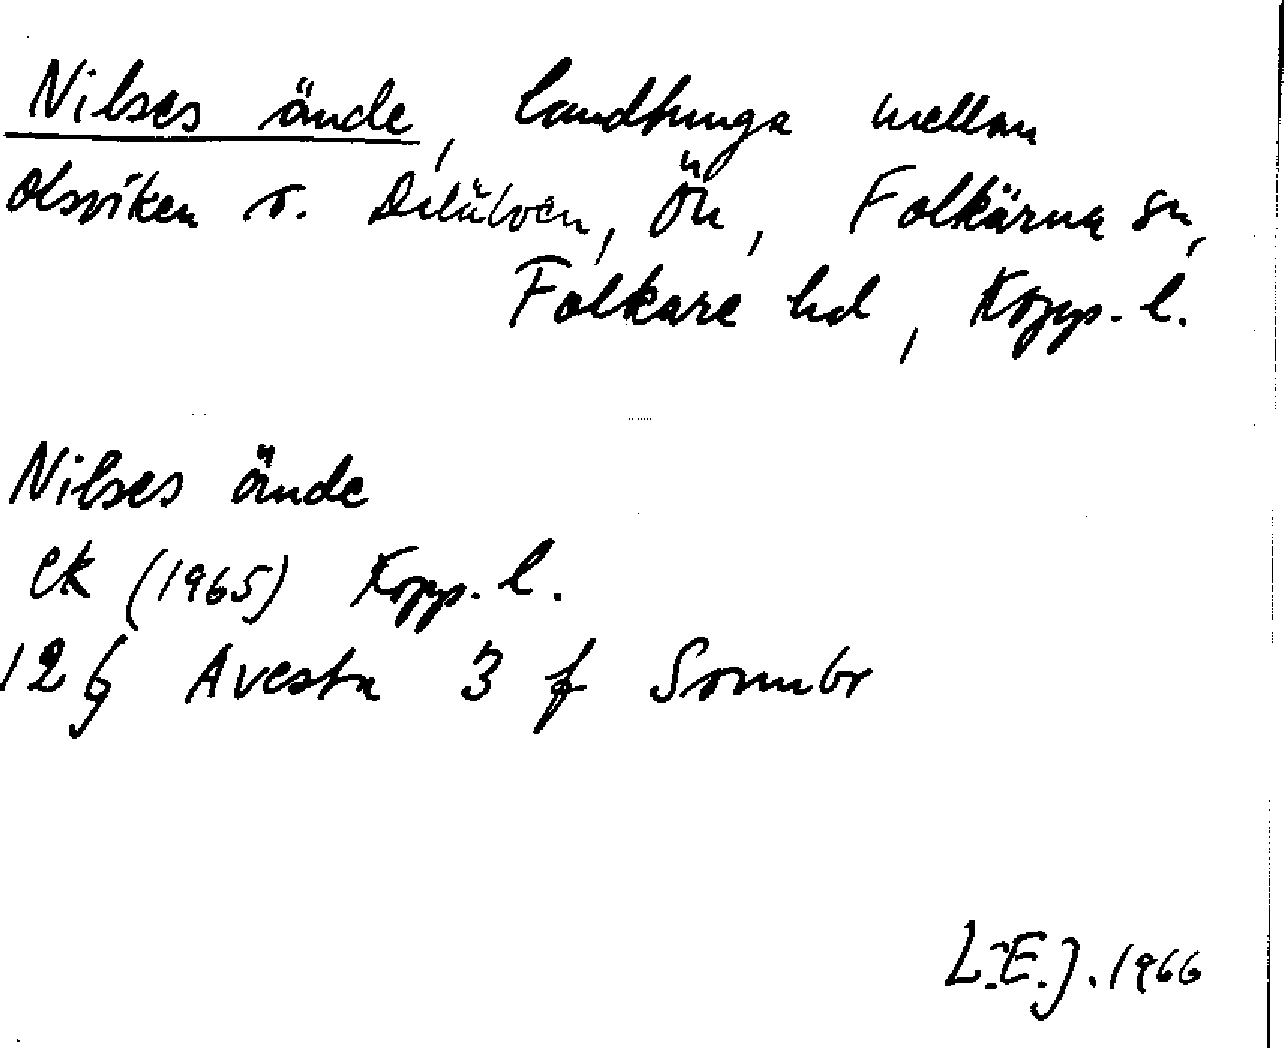 Nilses ände, landtunga mellan
Olsviken o. Dalälven, Ön, Folkärna sn,
Folkare hd, Kopp. l.
Nilses ände
ek (1965) Kopp. l.
12 G Avesta 3 f Sonnbo
L.E.J. 1966